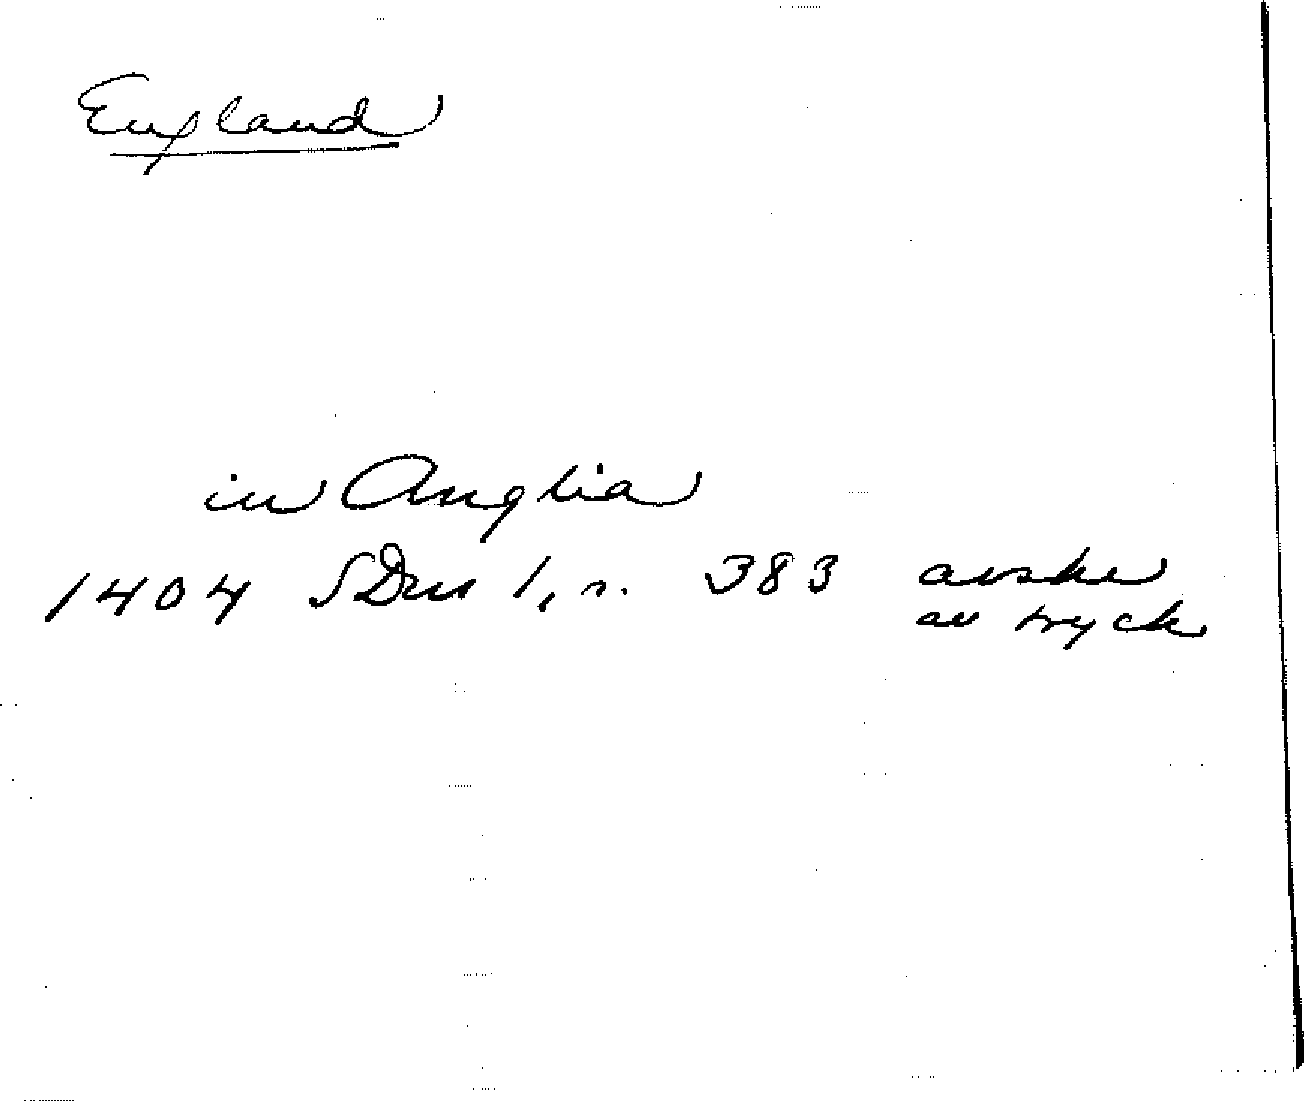 England
in Anglia
1404 SDns 1, s. 383 avskr
av tryck